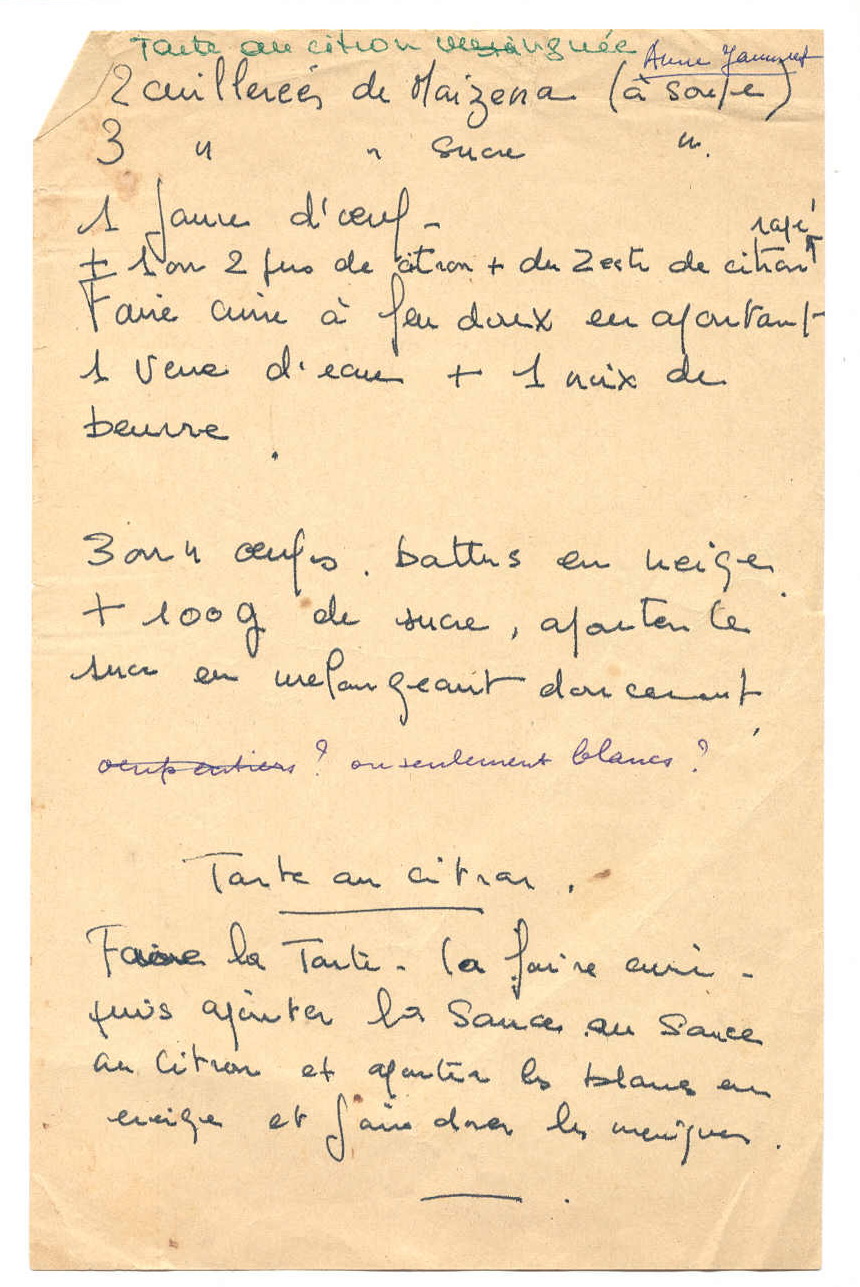 Tarte au citron meringuée
Anne
2 cuillerées de Maizena (à soupe)
3 " " sucre ".
1 jaune d'œuf -
rapé
+ 1 ou 2 jus de citron + du zeste de citron
Faire cuire à feu doux en ajoutant
1 verre d'eau + 1 noix de
beurre.
3 ou 4 œufs. battus en neige
+ 100g de sucre, ajouter le
sucre en melangeant doucement
oeufs entiers ? ou seulement blancs ?
Tarte au citron.
Faire la Tarte - la faire cuire -
puis ajouter la Sauce au Sauce
au citron et ajouter les blancs en
neige et faire dorer les meringues.